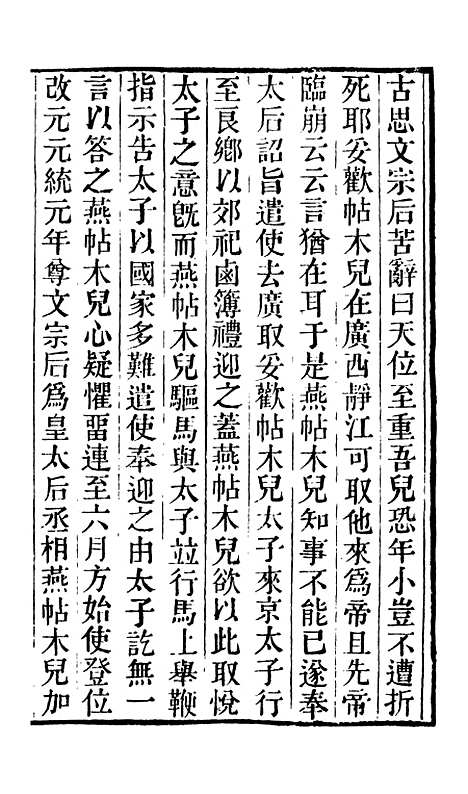 古思文宗后苦辭曰天位至重吾兒恐年小豈不遭折
死耶妥歡帖木兒在廣西靜江可取他來爲帝且先帝
臨崩云云言猶在耳于是燕帖木兒知事不能已遂奉
太后詔旨遣使去廣取妥歡帖木兒太子來京太子行
至良鄉以郊祀鹵簿禮迎之蓋燕帖木兒欲以此取悅
太子之意旣而燕帖木兒驅馬與太子並行馬上舉鞭
指示告太子以國家多難遣使奉迎之由太子訖無一
言以答之燕帖木兒心疑懼畱連至六月方始使登位
改元元統元年尊文宗后爲皇太后丞相燕帖木兒加